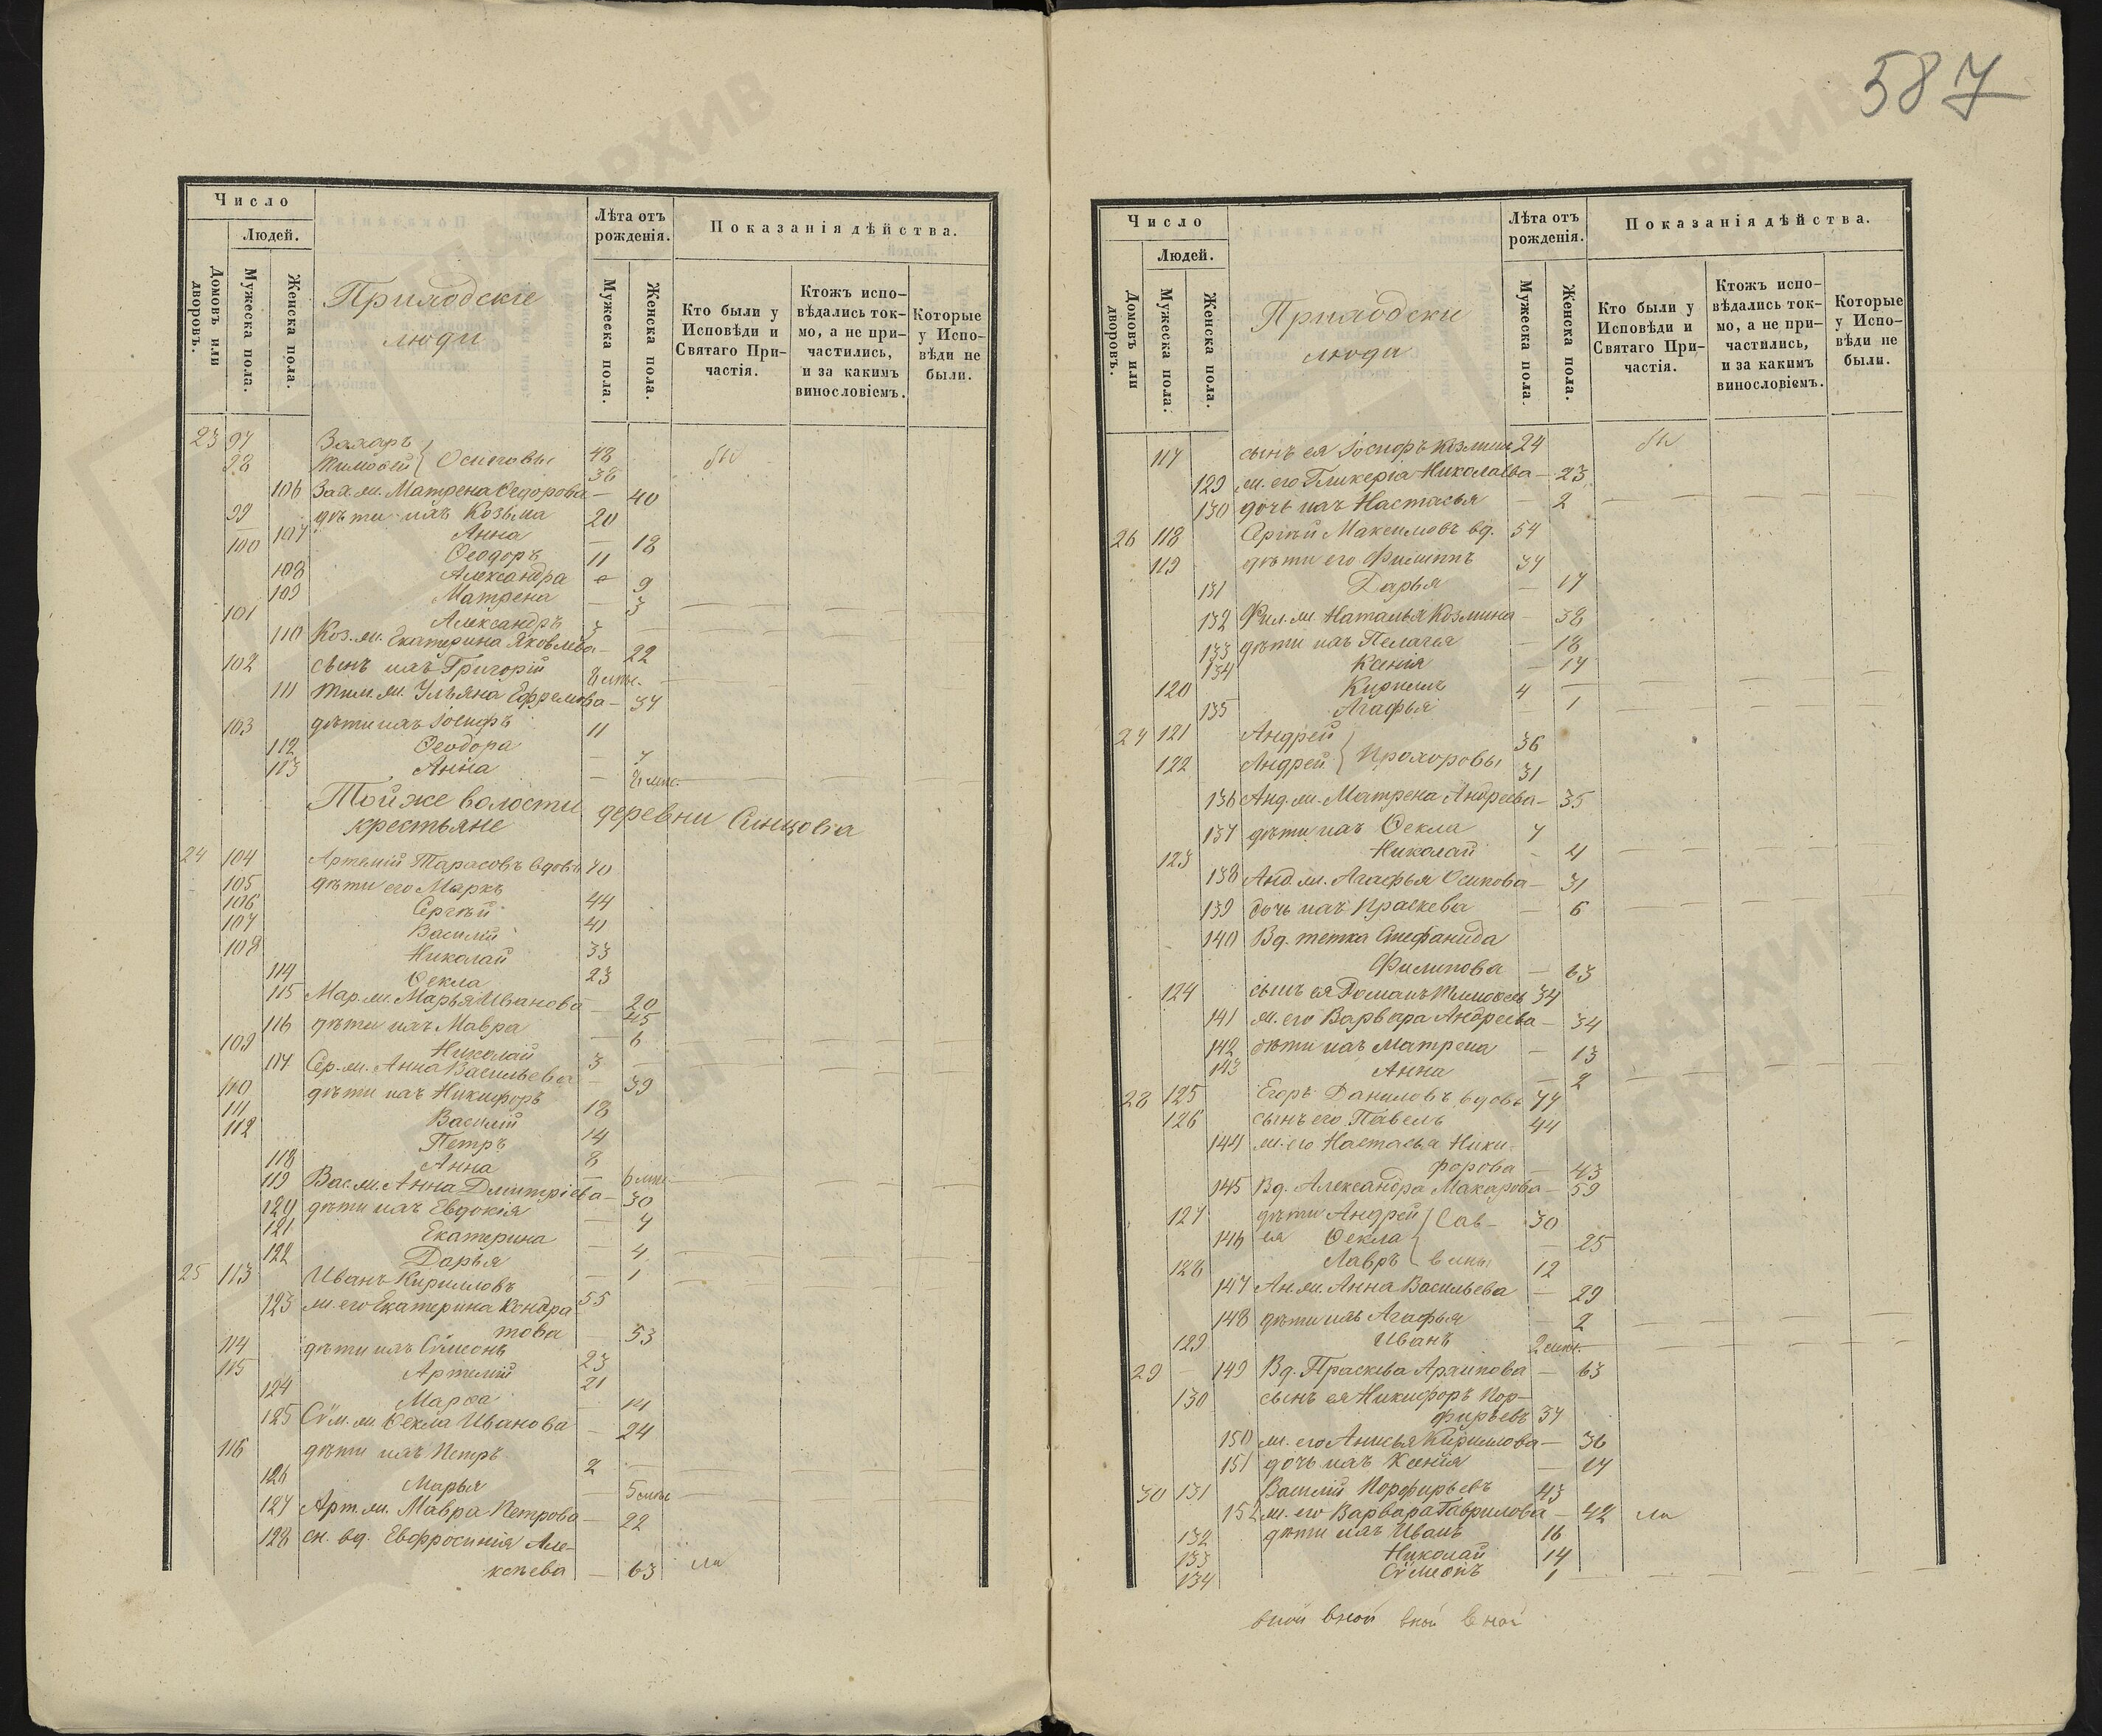 587
Число
Людей.
Домовъ или дворовъ.
Мужеска пола.
Женска пола.
Приходскіе
люди
Лѣта отъ рожденія.
Мужеска пола.
Женска пола.
Показанія дѣйства.
Кто были у Исповѣди и Святаго При-
частія.
Ктожъ испо-
вѣдались ток-
мо, а не при-
частились,
и за какимъ
винословіемъ.
Которые
у Испо-
вѣди не
были.
23 97 Захаръ 48
98 Тимоѳей } Осиповы 38 бы
106 Зах. ж. Матрена Ѳедорова — 40
99 дѣти ихъ Козьма 20
107 Анна — 18
100 Ѳеодоръ 11
108 Александра — 9
109 Матрена — 3
101 Александръ 3
110 Коз. ж. Екатерина Яковлева — 22
102 сынъ ихъ Григорій
111 Тим. ж. Ульяна Ефремова — 37
103 дѣти ихъ Іосифъ 11
112 Ѳеодора — 7
113 Анна —
Той же волости деревни Синцовіа
крестьяне
24 104 Артемій Тарасовъ вдовъ 70
105 дѣти его Маркъ 44
106 Сергѣй 41
107 Василій 33
108 Николай 23
114 Ѳекла — 20
115 Мар. ж. Марья Иванова — 45
116 дѣти ихъ Мавра — 6
109 Николай 3
117 Сер. ж. Анна Васильева — 39
110 дѣти ихъ Никифоръ 18
111 Василій 14
112 Петръ 8
118 Анна —
119 Вас. ж. Анна Дмитріева — 30
120 дѣти ихъ Евдокія — 7
121 Екатерина — 4
122 Дарья — 1
25 113 Иванъ Кирилловъ 55
123 ж. его Екатерина Кондра
това — 53
114 дѣти ихъ Сѷмеонъ 23
115 Артемій 21
124 Марѳа — 14
125 Сѷм. ж. Ѳекла Иванова — 24
116 дѣти ихъ Петръ 2
126 Марья —
127 Арт. ж. Мавра Петрова — 22
128 сн. вд. Евфросинія Але-
ксѣева — 63 ли
Число
Людей.
Домовъ или дворовъ.
Мужеска пола.
Женска пола.
Приходскі
люди
Лѣта отъ рожденія.
Мужеска пола.
Женска пола.
Показанія дѣйства.
Кто были у Исповѣди и Святаго При-
частія.
Ктожъ испо-
вѣдались ток-
мо, а не при-
частились,
и за какимъ
винословіемъ.
Которые
у Испо-
вѣди не
были.
117 сынъ ея Іосифъ Козмин 24 бы
129 ж. его Гликерія Николаева — 23
130 дочь ихъ Настасья — 2
26 118 Сергѣй Максимовъ вд. 54
119 дѣти его Филиппъ 37
131 Дарья — 17
132 Фил. ж. Наталья Козмина — 38
133 дѣти ихъ Пелагея — 18
134 Ксенія — 17
120 Кирилъ 4
135 Агафья — 1
27 121 Андрей 36
122 Андрей } Прохоровы 31
136 Анд. ж. Матрена Андреева — 35
137 дѣти ихъ Ѳекла 7
123 Николай — 4
138 Анд. ж. Агафья Осипова — 31
139 дочь ихъ Праскева — 6
140 Вд. тетка Стефанида
Филипова — 63
124 сынъ ея Романъ Тимоѳеевъ 34
141 ж. его Варвара Андреева — 34
142 дѣти ихъ Матрена — 13
143 Анна — 2
28 125 Егоръ Даниловъ вдовъ 77
126 сынъ его Павелъ 44
144 ж. его Настасья Ники-
форова — 43
145 Вд. Александра Макарова — 59
127 дѣти Андрей } Сав- 30
146 ея Ѳекла — 25
128 Лавръ вины 12
147 Ан. ж. Анна Васильева — 29
148 дѣти ихъ Агафья — 2
129 Иванъ
29 — 149 Вд. Праскева Архипова — 63
130 сынъ ея Никифоръ Пор-
фирьевъ 37
150 ж. его Анисья Кирилова — 36
151 дочь ихъ Ксенія — 17
30 131 Василій Порфирьевъ 43
152 ж. его Варвара Гаврилова — 42 ли
132 дѣти ихъ Иванъ 16
133 Николай 14
134 Сѷмеонъ 1